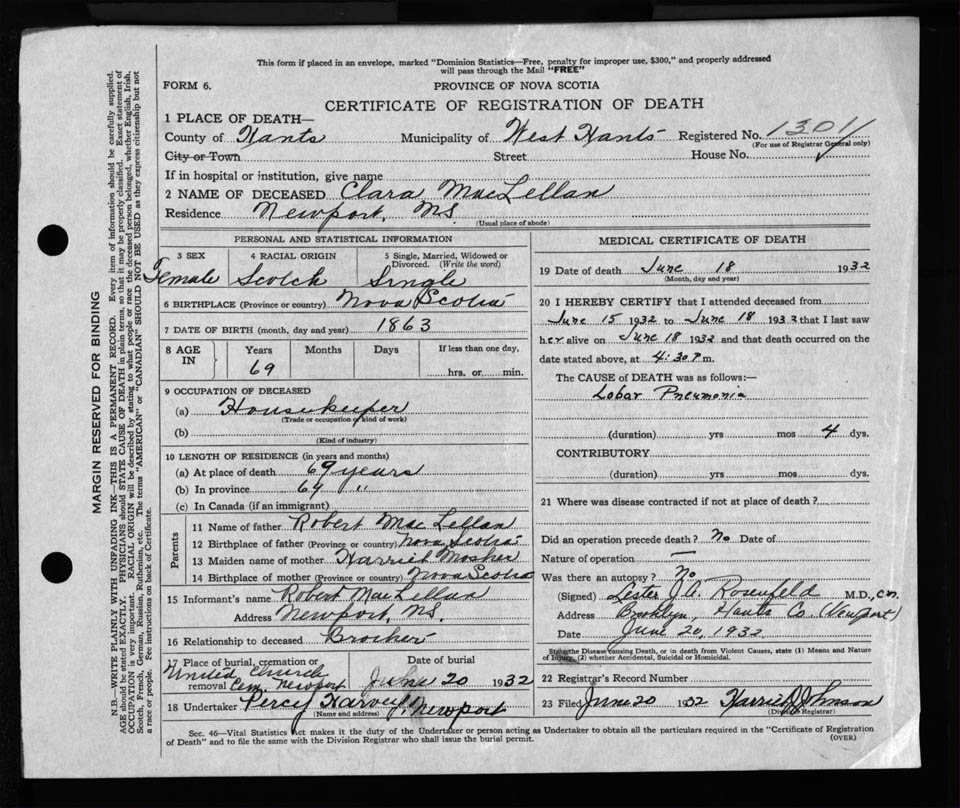 This form if placed in an envelope, marked "Dominion Statistics—Free, penalty for improper use, $300," and properly addressed
will pass through the Mail "FREE"
FORM 6.
PROVINCE OF NOVA SCOTIA
CERTIFICATE OF REGISTRATION OF DEATH
1 PLACE OF DEATH—
County of Hants Municipality of West Hants Registered No. 1301
(For use of Registrar General only)
City or Town Street House No.
If in hospital or institution, give name
2 NAME OF DECEASED Clara MacLellan
Residence Newport, NS.
(Usual place of abode)
PERSONAL AND STATISTICAL INFORMATION
3 SEX 4 RACIAL ORIGIN 5 Single, Married, Widowed or
Divorced. (Write the word)
Female Scotch Single
6 BIRTHPLACE (Province or country) Nova Scotia
7 DATE OF BIRTH (month, day and year) 1863
8 AGE IN Years Months Days If less than one day,
69 hrs. or min.
9 OCCUPATION OF DECEASED
(a) Housekeeper
(Trade or occupation or kind of work)
(b)
(Kind of industry)
10 LENGTH OF RESIDENCE (in years and months)
(a) At place of death 69 years
(b) In province 69 "
(c) In Canada (if an immigrant)
Parents
11 Name of father Robert Mac Lellan
12 Birthplace of father (Province or country) Nova Scotia
13 Maiden name of mother Harriet Mosher
14 Birthplace of mother (Province or country) Nova Scotia
15 Informant's name Robert MacLellan
Address Newport, NS.
16 Relationship to deceased Brother
17 Place of burial, cremation or Date of burial
United Church
removal Cem. Newport June 20 1932
18 Undertaker Percy Harvey, Newport
(Name and address)
MEDICAL CERTIFICATE OF DEATH
19 Date of death June 18 1932
(Month, day and year)
20 I HEREBY CERTIFY that I attended deceased from
June 15 1932 to June 18 1932 that I last saw
her alive on June 18 1932 and that death occurred on the
date stated above, at 4:30 P.m.
The CAUSE of DEATH was as follows:—
Lobar Pneumonia
(duration) yrs mos 4 dys.
CONTRIBUTORY
(duration) yrs mos dys.
21 Where was disease contracted if not at place of death?
Did an operation precede death? No Date of
Nature of operation —
Was there an autopsy? No
(Signed) Lester J. Rosenfeld M.D., C.M.
Address Brooklyn, Hants Co (Newport)
Date June 20, 1932
State the Disease Causing Death, or in death from Violent Causes, state (1) Means and Nature
of Injury, (2) whether Accidental, Suicidal or Homicidal.
22 Registrar's Record Number
23 Filed June 20 1932 Harris J Johnson
(Division Registrar)
Sec. 46—Vital Statistics Act makes it the duty of the Undertaker or person acting as Undertaker to obtain all the particulars required in the "Certificate of Registration
of Death" and to file the same with the Division Registrar who shall issue the burial permit.
(OVER)
MARGIN RESERVED FOR BINDING
N.B.—WRITE PLAINLY WITH UNFADING INK—THIS IS A PERMANENT RECORD. Every item of information should be carefully supplied.
AGE should be stated EXACTLY. PHYSICIANS should STATE CAUSE OF DEATH in plain terms, so that it may be properly classified. Exact statement of
OCCUPATION is very important. RACIAL ORIGIN will be described by stating to what people or race the deceased person belonged, whether English, Irish,
Scotch, French, German, Russian, Ruthenian, etc. The terms "AMERICAN" or "CANADIAN" SHOULD NOT BE USED as they express citizenship but not
a race or people. See instructions on back of Certificate.